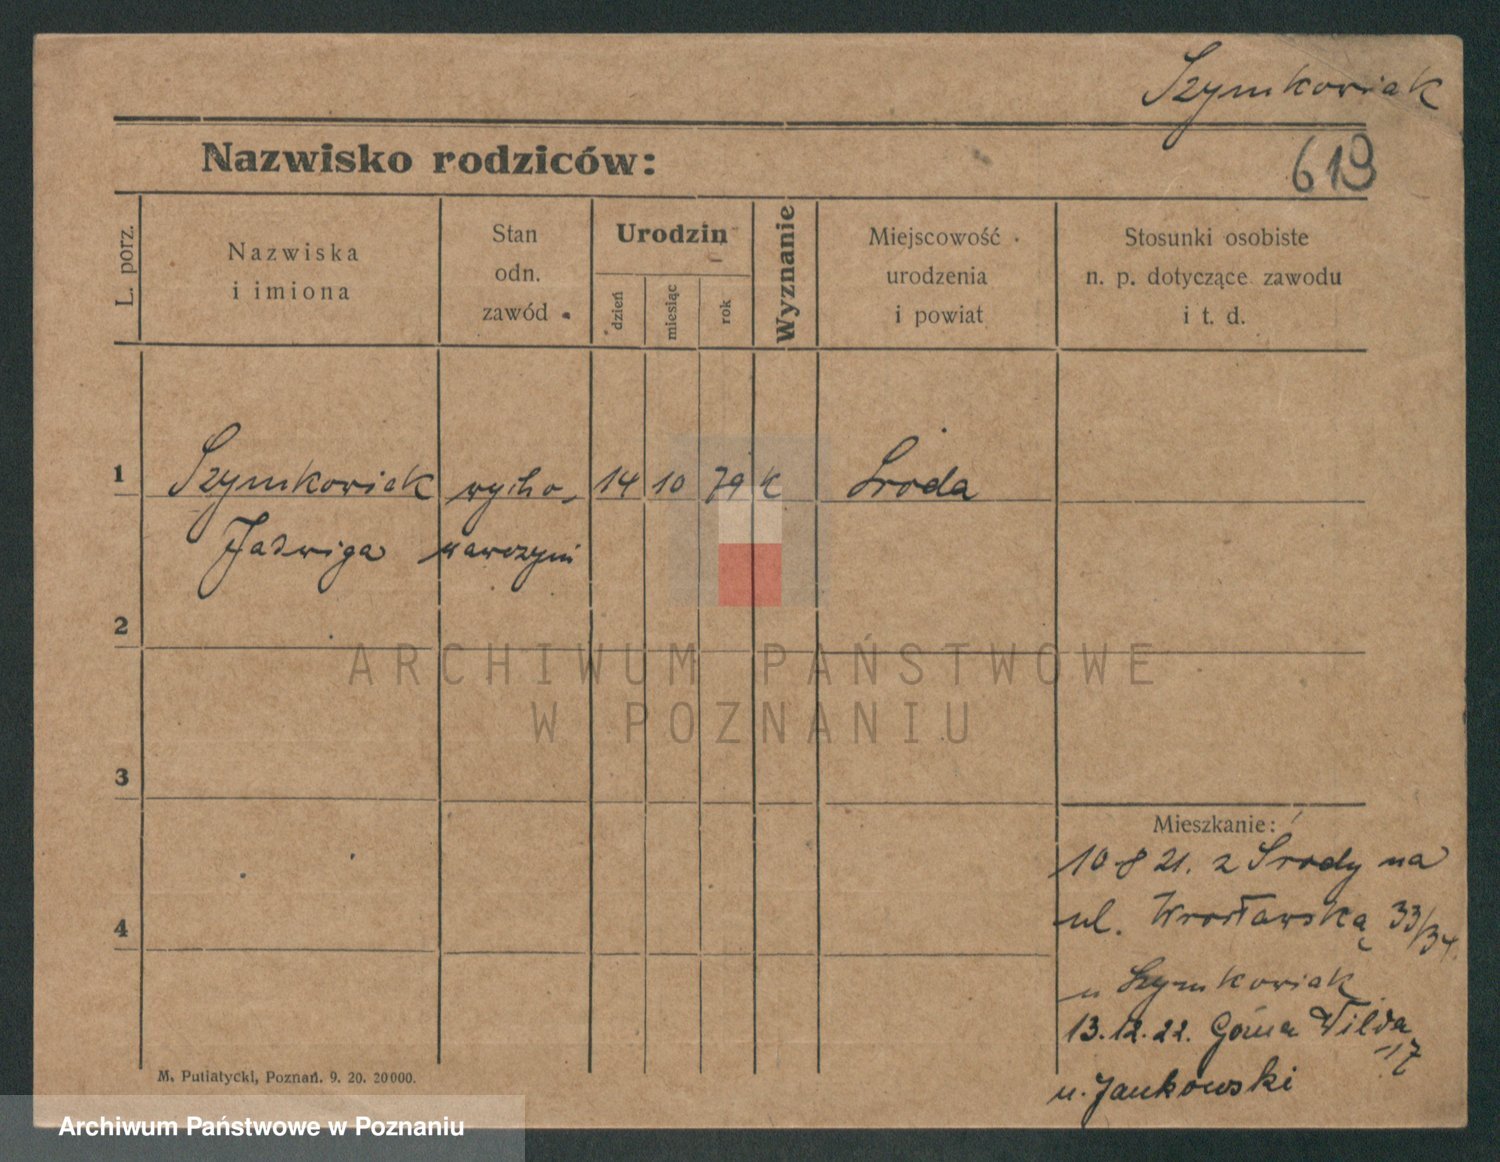 Szymkowiak
Nazwisko rodziców:
619
L. porz.
Nazwiska
i imiona
Stan
odn.
zawód
Urodzin
dzień
miesiąc
rok
Wyznanie
Miejscowość
urodzenia
i powiat
Stosunki osobiste
n. p. dotyczące zawodu
i t. d.
1
Szymkowiak wycho- 14 10 79 k Środa
Jadwiga wawczyni
2
ARCHIWUM PAŃSTWOWE
W POZNANIU
3
Mieszkanie:
10 8 21. z Środy na
ul. Wrocławską 33/34.
u Szymkowiak
13.12.22. Górna Wilda
117
u. Jankowski
4
M. Putiatycki, Poznań. 9. 20. 20000.
Archiwum Państwowe w Poznaniu